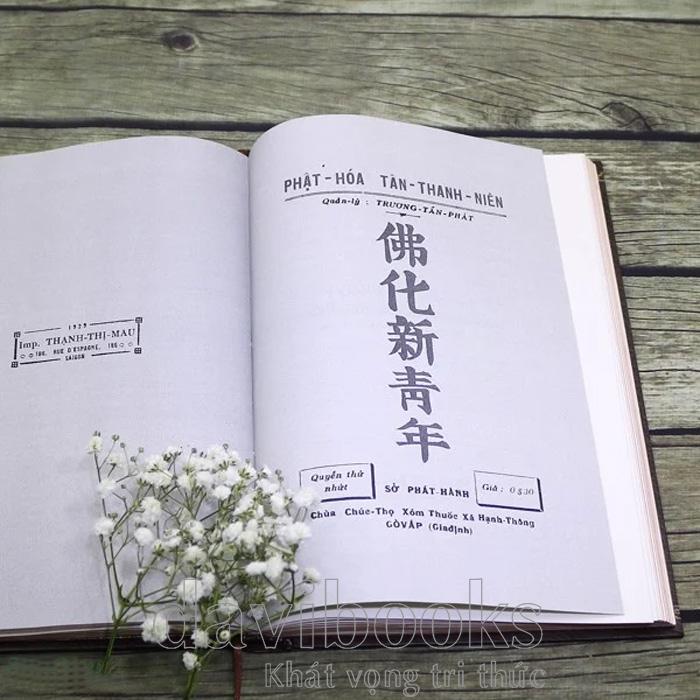 1929
Imp. THẠNH-THỊ-MAU
186, RUE D'ESPAGNE, 186
SAIGON
PHẬT-HÓA TÂN-THANH-NIÊN
Quản-lý : TRƯƠNG-TẤN-PHÁT
佛化新青年
Quyển thứ
nhứt
SỞ PHÁT-HÀNH
Giá : 0$30
Chùa Chúc-Thọ Xóm Thuốc Xã Hạnh-Thông
GÒVẤP (Giađịnh)
davibooks
Khát vọng tri thức